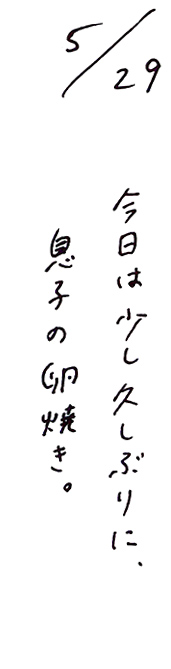 5/29
今日は少し久しぶりに、
息子の卵焼き。